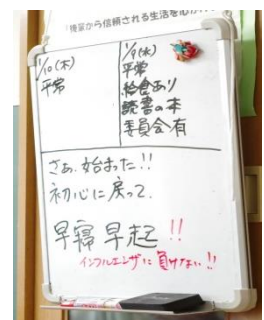 後輩から信頼される生活を心が
1/10(木)
平常
1/9(水)
平常
給食あり
読書の本
委員会有
さぁ、始まった!!
初心に戻って、
早寝早起!!
インフルエンザに負けない!!